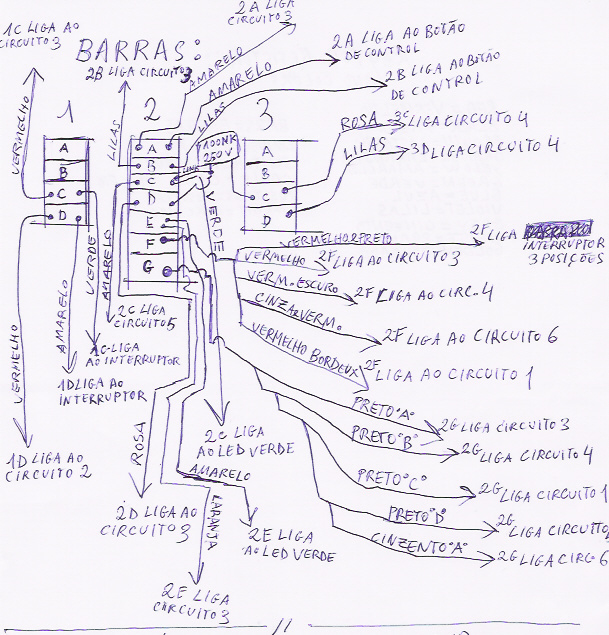 1C LIGA AO
CIRCUITO 3
2A LIGA
CIRCUITO 3
BARRAS:
2B LIGA CIRCUITO 3
AMARELO
AMARELO
LILAS
2A LIGA AO BOTÃO
DE CONTROL
2B LIGA AO BOTÃO
DE CONTROL
1
2
3
VERMELHO
LILAS
100NK
250V
ROSA
3C LIGA CIRCUITO 4
LILAS
3D LIGA CIRCUITO 4
A
B
C
D
A
B
C
D
E
F
G
A
B
C
D
VERDE
AMARELO
VERDE
VERMELHO PRETO
2F LIGA
INTERRUPTOR
3 POSIÇÕES
VERMELHO
2F LIGA AO CIRCUITO 3
VERM. ESCURO
2F LIGA AO CIRC. 4
CINZA VERM.
2F LIGA AO CIRCUITO 6
VERMELHO BORDEUX
2F
LIGA AO CIRCUITO 1
2C LIGA
CIRCUITO 5
VERMELHO
AMARELO
1C LIGA
AO INTERRUPTOR
1D LIGA AO
INTERRUPTOR
PRETO "A"
2G LIGA CIRCUITO 3
PRETO "B"
2G LIGA CIRCUITO 4
PRETO "C"
2G LIGA CIRCUITO 1
PRETO "D"
2G
LIGA CIRCUITO
CINZENTO "A"
2G LIGA CIRC. 6
1D LIGA AO
CIRCUITO 2
ROSA
2C LIGA
AO LED VERDE
AMARELO
LARANJA
2D LIGA AO
CIRCUITO 3
2E LIGA
AO LED VERDE
2E LIGA
CIRCUITO 3